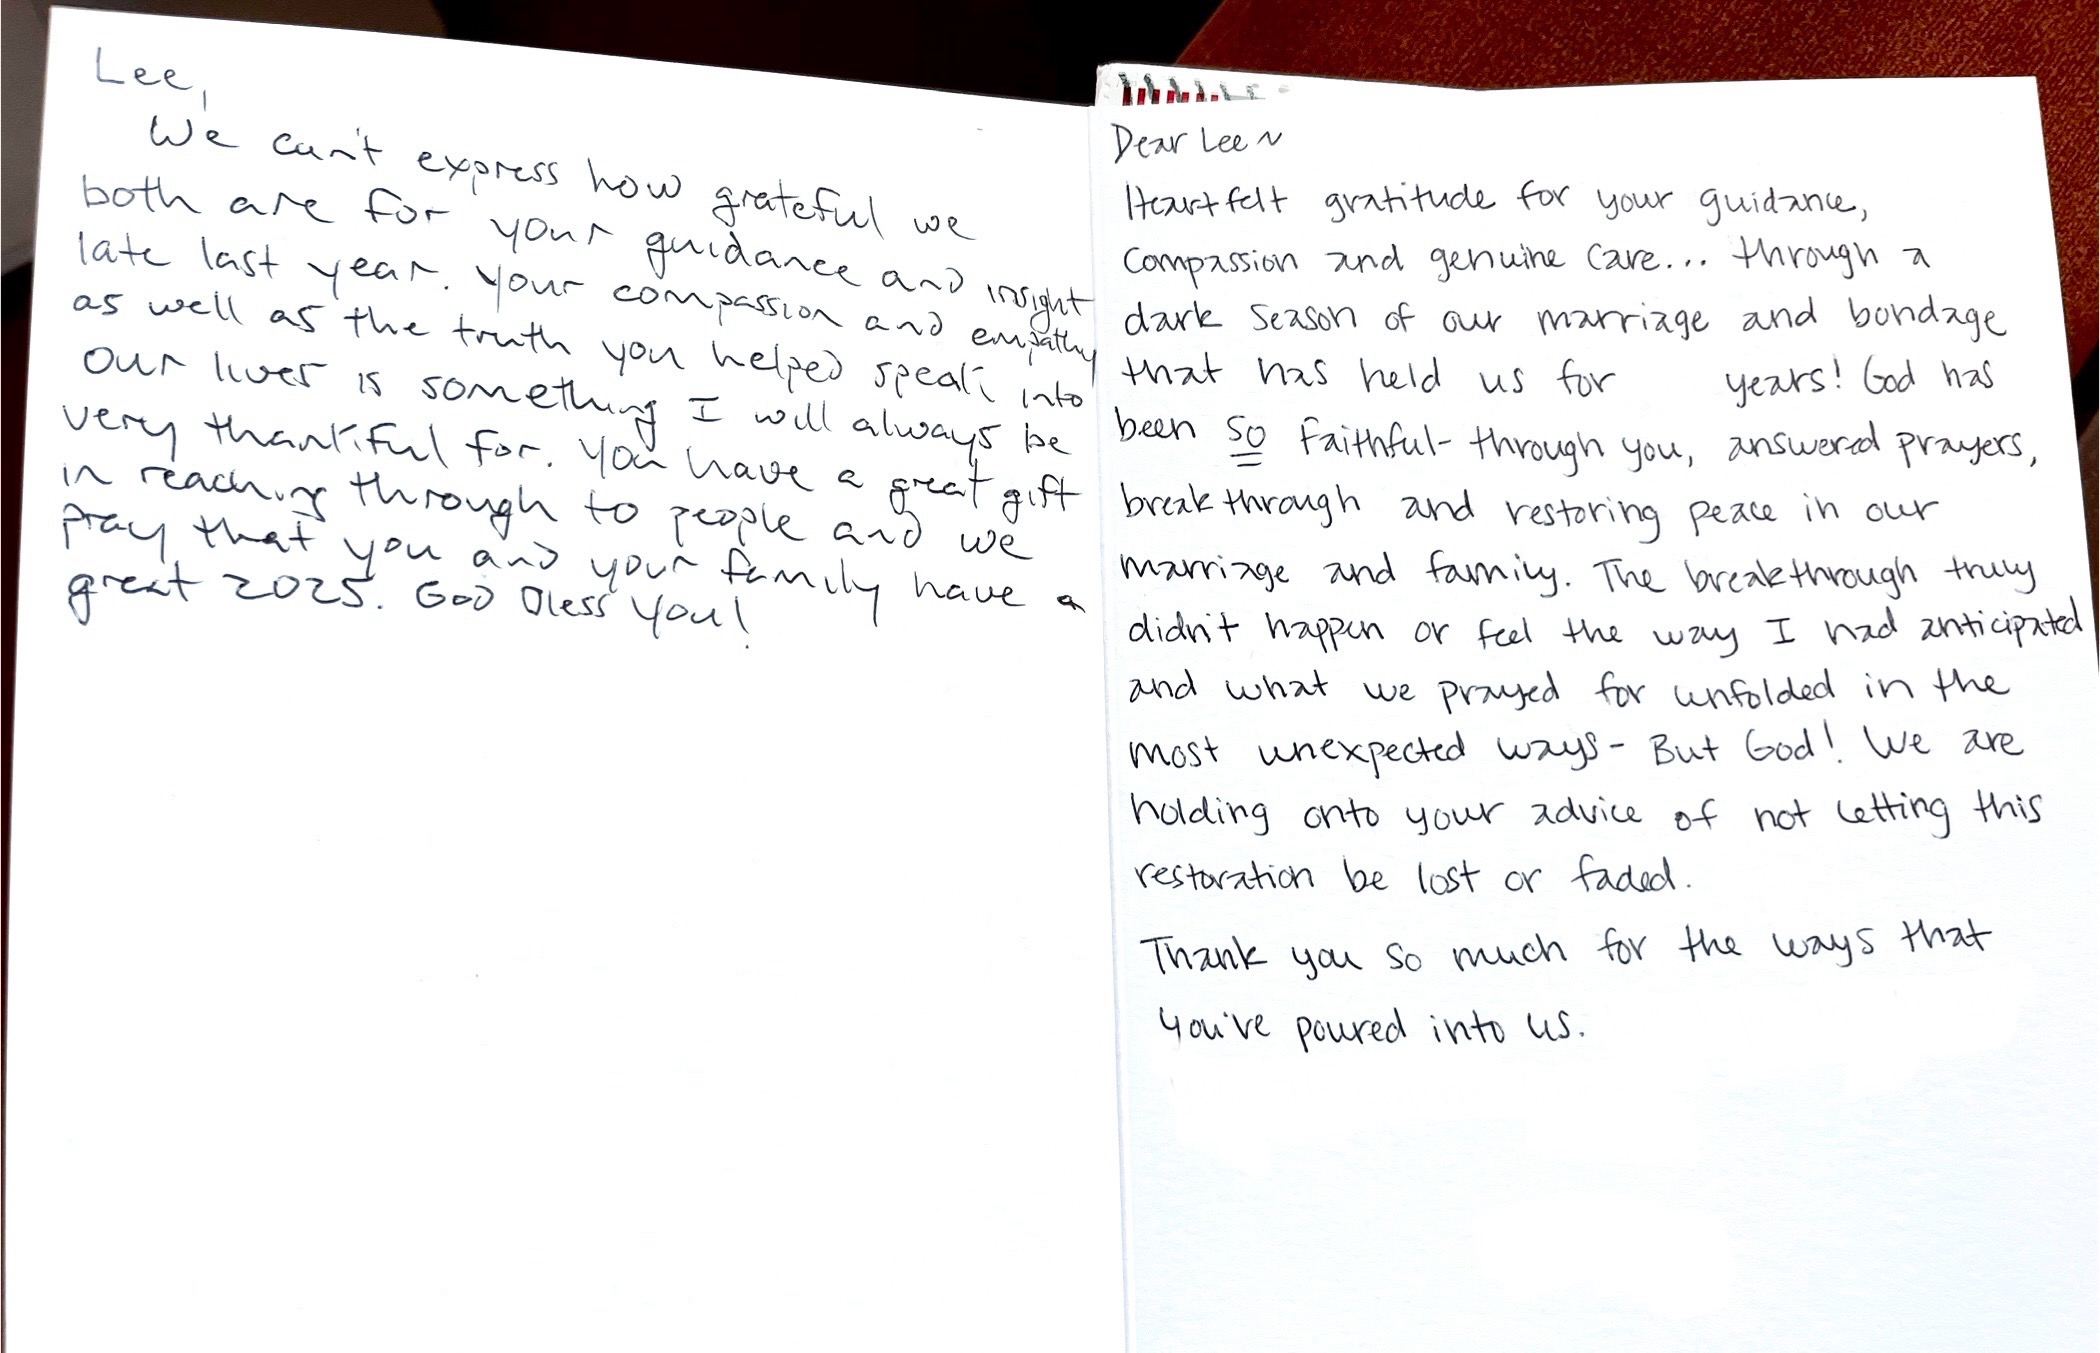 Lee,
We can't express how grateful we
both are for your guidance and insight
late last year. Your compassion and empathy
as well as the truth you helped speak into
our lives is something I will always be
very thankful for. You have a great gift
in reaching through to people and we
pray that you and your family have a
great 2025. God Bless You!
Dear Lee ~
Heartfelt gratitude for your guidance,
compassion and genuine care... through a
dark season of our marriage and bondage
that has held us for years! God has
been so faithful- through you, answered prayers,
breakthrough and restoring peace in our
marriage and family. The breakthrough truly
didn't happen or feel the way I had anticipated
and what we prayed for unfolded in the
most unexpected ways- But God! We are
holding onto your advice of not letting this
restoration be lost or faded.
Thank you so much for the ways that
you've poured into us.